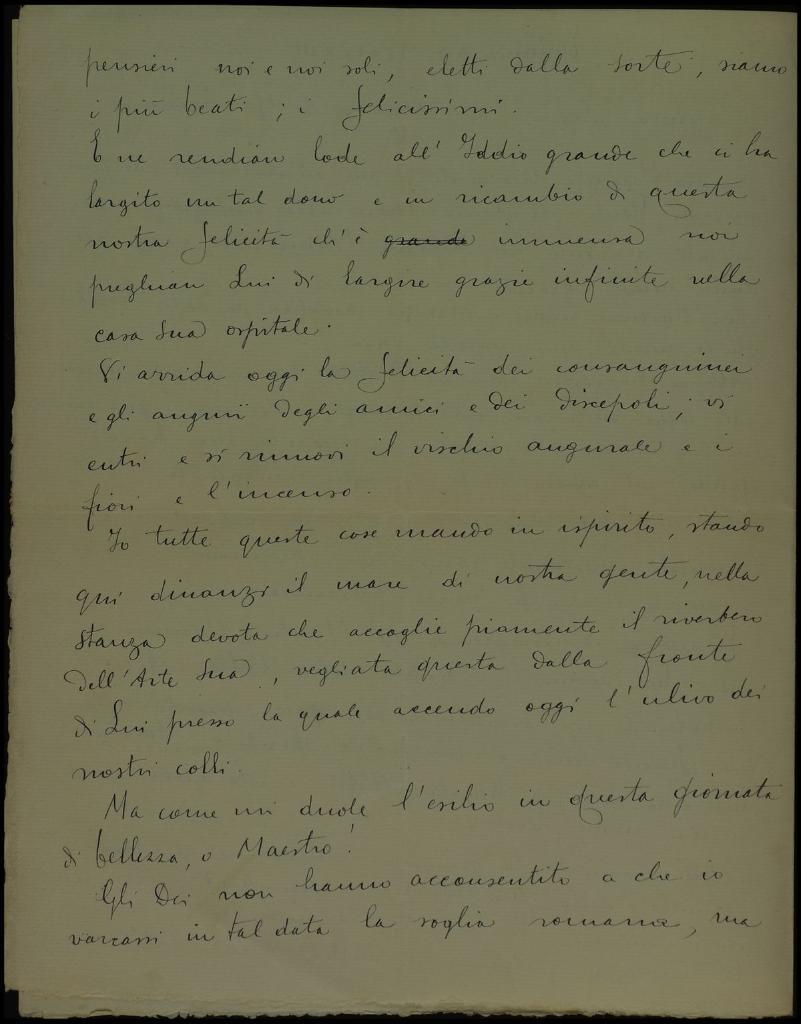 pensieri noi e noi soli, eletti dalla sorte, siamo
i più beati; i felicissimi.
E ne rendiam lode all' Iddio grande che ci ha
largito un tal dono e in ricambio di questa
nostra felicità ch'è grande immensa noi
preghiam Lui di largire grazie infinite nella
casa Sua ospitale.
Vi arrida oggi la felicità dei consanguinei
e gli augurii degli amici e dei discepoli; vi
entri e si rinnovi il vischio augurale e i
fiori e l'incenso.
Io tutte queste cose mando in ispirito, stando
qui dinanzi il mare di nostra gente, nella
stanza devota che accoglie piamente il riverbero
dell'Arte Sua, vegliata questa dalla fronte
di Lui presso la quale accendo oggi l'ulivo dei
nostri colli.
Ma come mi duole l'esilio in questa giornata
di bellezza, o Maestro!
Gli Dei non hanno acconsentito a che io
varcassi in tal data la soglia romana, ma